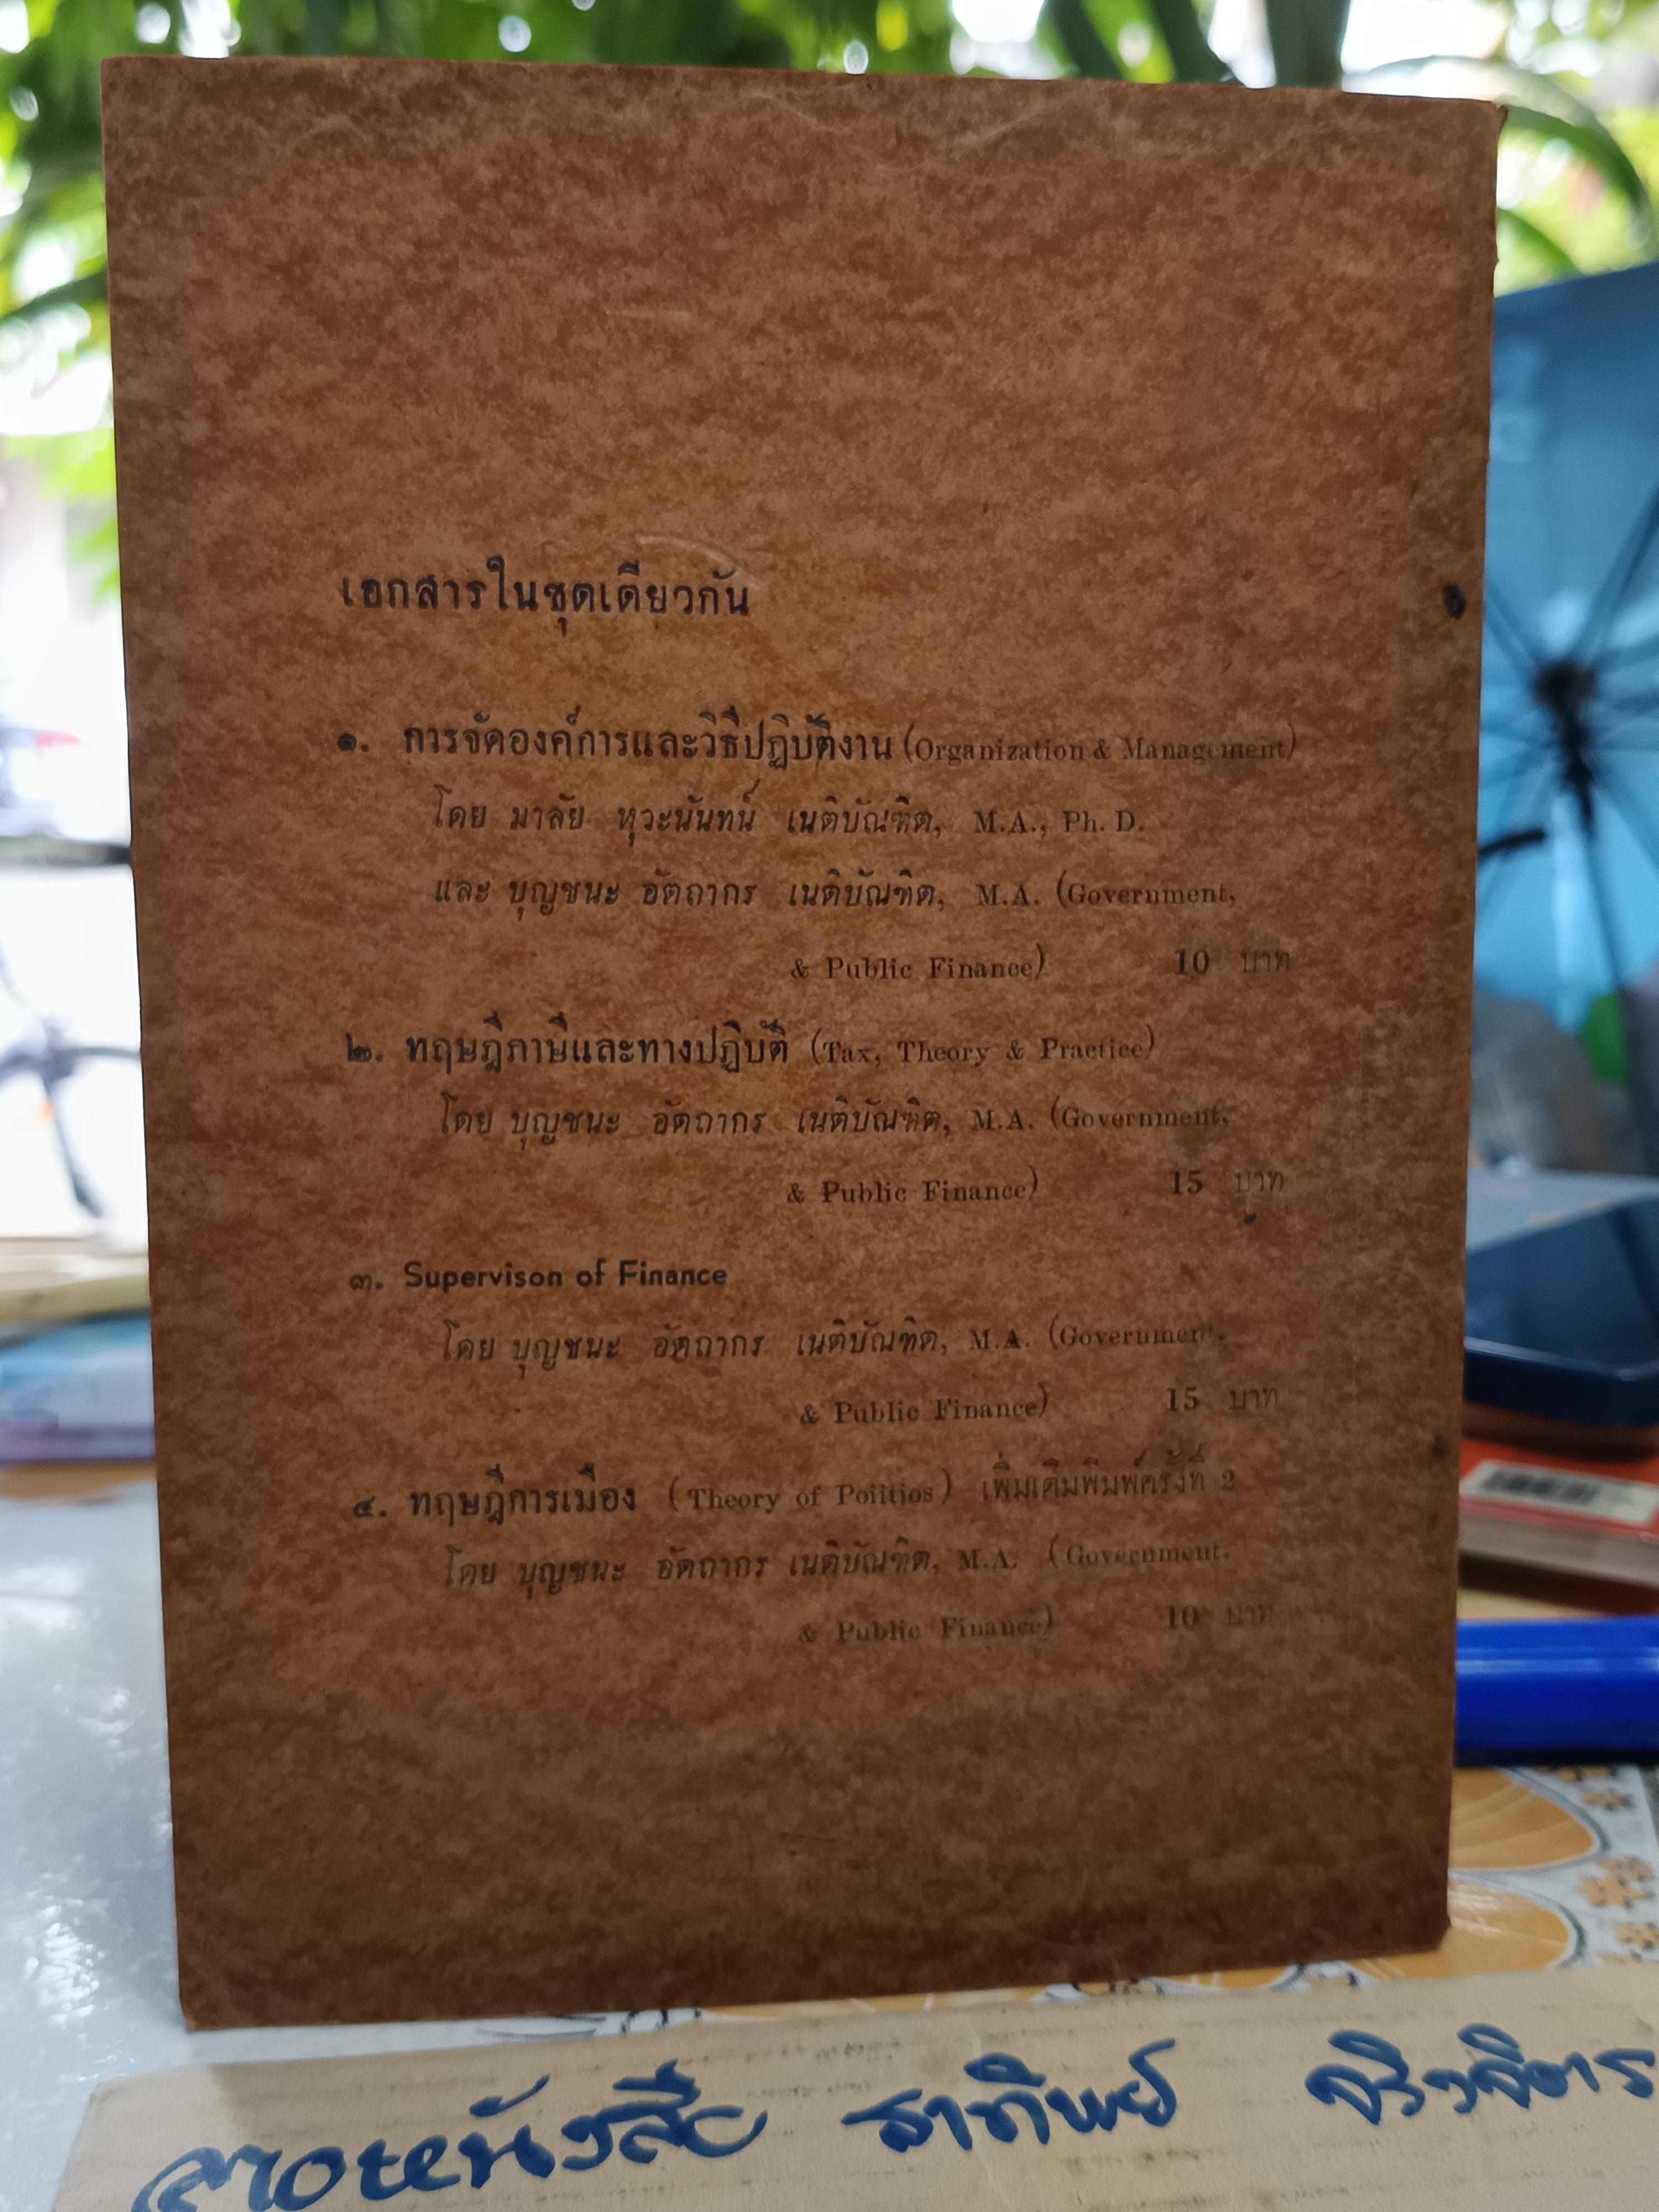 เอกสารในชุดเดียวกัน
๑. การจัดองค์การและวิธีปฏิบัติงาน (Organization & Management)
โดย มาลัย หุวะนันทน์ เนติบัณฑิต, M.A., Ph. D.
และ บุญชนะ อัตถากร เนติบัณฑิต, M.A. (Government,
& Public Finance) 10 บาท
๒. ทฤษฎีภาษีและทางปฏิบัติ (Tax, Theory & Practice)
โดย บุญชนะ อัตถากร เนติบัณฑิต, M.A. (Government,
& Public Finance) 15 บาท
๓. Supervison of Finance
โดย บุญชนะ อัตถากร เนติบัณฑิต, M.A. (Government,
& Public Finance) 15 บาท
๔. ทฤษฎีการเมือง (Theory of Poiitios) เพิ่มเติมพิมพ์ครั้งที่ 2
โดย บุญชนะ อัตถากร เนติบัณฑิต, M.A. (Government,
& Public Finance) 10 บาท
หนังสือ ธาทิพย์